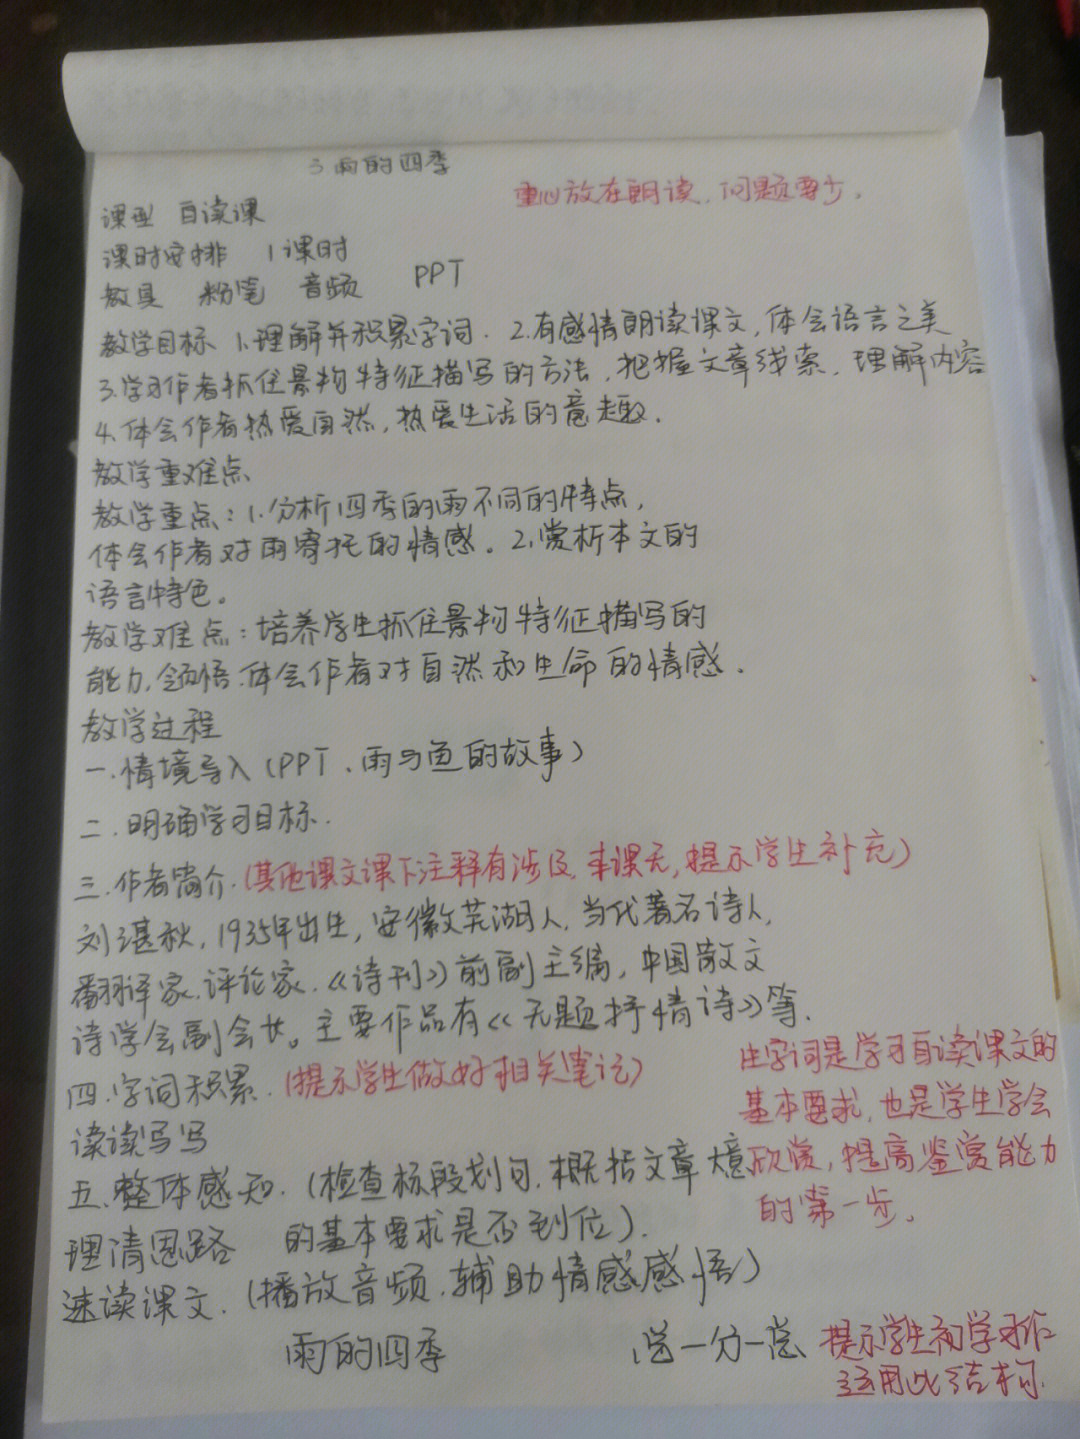 3 雨的四季
重心放在朗读，问题要少。
课型 自读课
课时安排 1课时
教具 粉笔 音频 PPT
教学目标 1.理解并积累字词. 2.有感情朗读课文,体会语言之美
3.学习作者抓住景物特征描写的方法,把握文章线索,理解内容
4.体会作者热爱自然,热爱生活的意趣.
教学重难点
教学重点:1.分析四季的雨不同的特点,
体会作者对雨寄托的情感。2.赏析本文的
语言特色。
教学难点:培养学生抓住景物特征描写的
能力,领悟.体会作者对自然和生命的情感.
教学过程
一.情境导入(PPT、雨与鱼的故事)
二.明确学习目标.
三.作者简介.(其他课文课下注释有涉及,本课无,提示学生补充)
刘湛秋,1935年出生,安徽芜湖人,当代著名诗人,
翻译家.评论家.《诗刊》前副主编,中国散文
诗学会副会长。主要作品有《无题抒情诗》等.
四.字词积累.(提示学生做好相关笔记)
生字词是学习自读课文的
基本要求,也是学生学会
欣赏,提高鉴赏能力
的第一步。
读读写写
五.整体感知.(检查标段划句,概括文章大意
理清思路 的基本要求是否到位).
速读课文.(播放音频.辅助情感感悟)
雨的四季 总一分一总 提示学生初学习作
运用此结构.